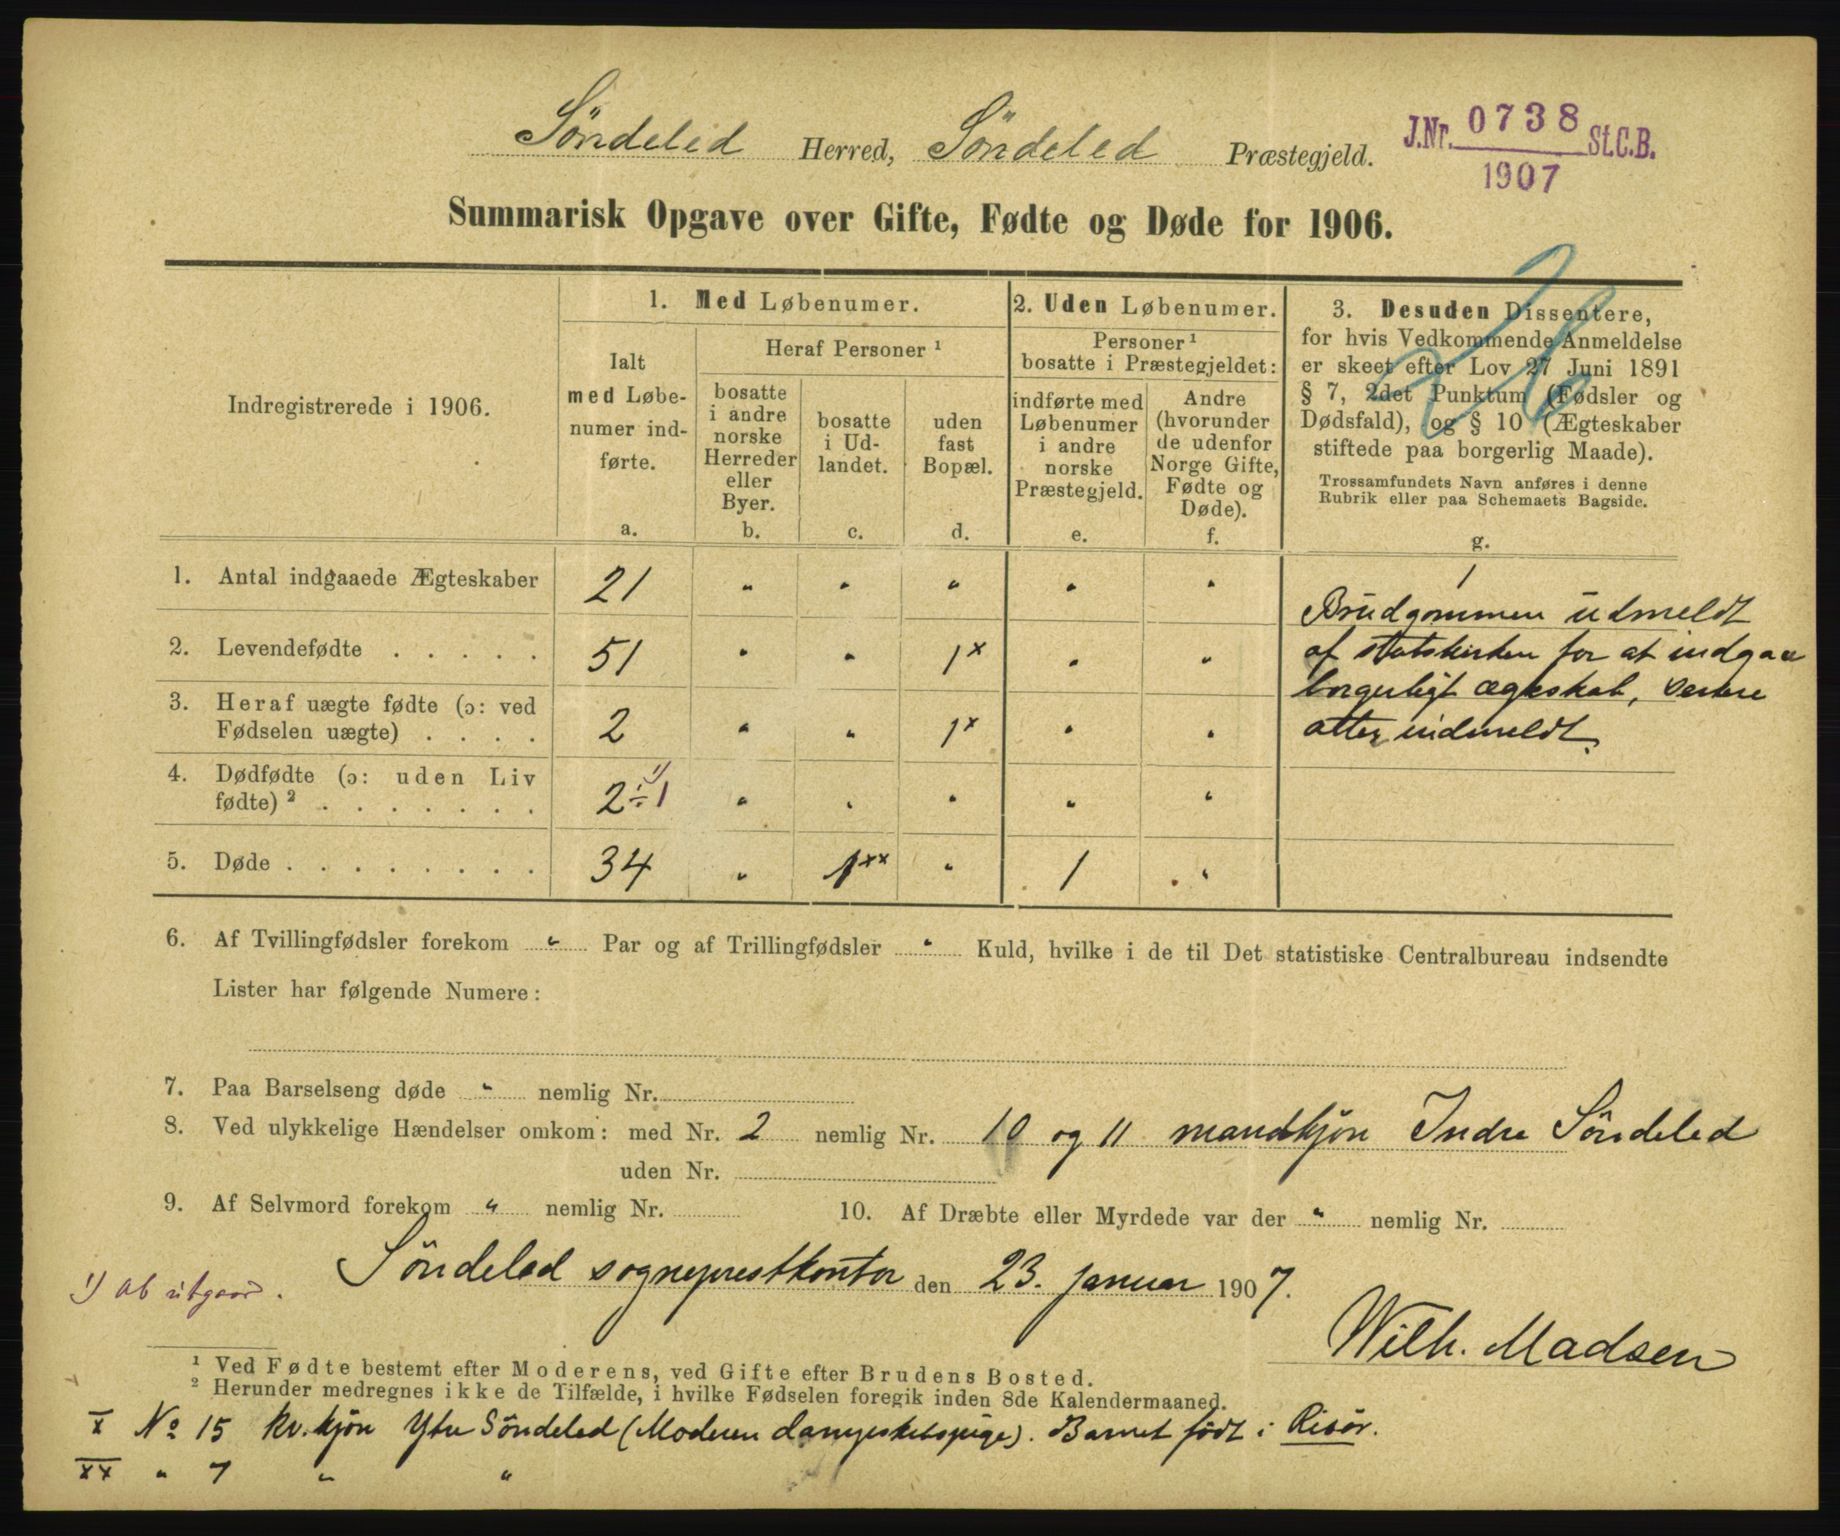 Söndeled Herred, Söndeled Præstegjeld.
J.Nr. 0738 St.C.B.
1907
Summarisk Opgave over Gifte, Fødte og Døde for 1906.
Indregistrerede i 1906.
1. Med Løbenumer.
Ialt
med Løbe-
numer ind-
førte.
a.
Heraf Personer ¹
bosatte
i andre
norske
Herreder
eller
Byer.
b.
bosatte
i Ud-
landet.
c.
uden
fast
Bopæl.
d.
2. Uden Løbenumer.
Personer ¹
bosatte i Præstegjeldet:
indførte med
Løbenumer
i andre
norske
Præstegjeld.
e.
Andre
(hvorunder
de udenfor
Norge Gifte,
Fødte og
Døde).
f.
3. Desuden Dissentere,
for hvis Vedkommende Anmeldelse
er skeet efter Lov 27 Juni 1891
§ 7, 2det Punktum (Fødsler og
Dødsfald), og § 10 (Ægteskaber
stiftede paa borgerlig Maade).
Trossamfundets Navn anføres i denne
Rubrik eller paa Schemaets Bagside.
g.
1. Antal indgaaede Ægteskaber 21 " " " " " 1
Brüdgommen üdmeldt
af statskirken for at indgaa
borgerligt ægteskab, senere
atter indmeldt.
2. Levendefødte . . . . . 51 " " 1ˣ " "
3. Heraf uægte fødte (ɔ: ved
Fødselen uægte) . . . . 2 " " 1ˣ " "
4. Dødfødte (ɔ: uden Liv
fødte) ² . . . . . . . 2 ÷ 1 ¹) " " " " "
5. Døde . . . . . . . . 34 " 1ˣˣ " 1 "
6. Af Tvillingfødsler forekom " Par og af Trillingfødsler " Kuld, hvilke i de til Det statistiske Centralbureau indsendte
Lister har følgende Numere:
7. Paa Barselseng døde " nemlig Nr.
8. Ved ulykkelige Hændelser omkom: med Nr. 2 nemlig Nr. 10 og 11 mandkjön Indre Söndeled
uden Nr.
9. Af Selvmord forekom " nemlig Nr. 10. Af Dræbte eller Myrdede var der " nemlig Nr.
Söndeled sogneprestkontor den 23. januar 1907.
¹) ab utgaar.
Wilh. Madsen
¹ Ved Fødte bestemt efter Moderens, ved Gifte efter Brudens Bosted.
² Herunder medregnes ikke de Tilfælde, i hvilke Fødselen foregik inden 8de Kalendermaaned.
x No 15 kv. kjön Ytre Söndeled (Moderen . Barnet födt i Risör.
xx " 7 " "